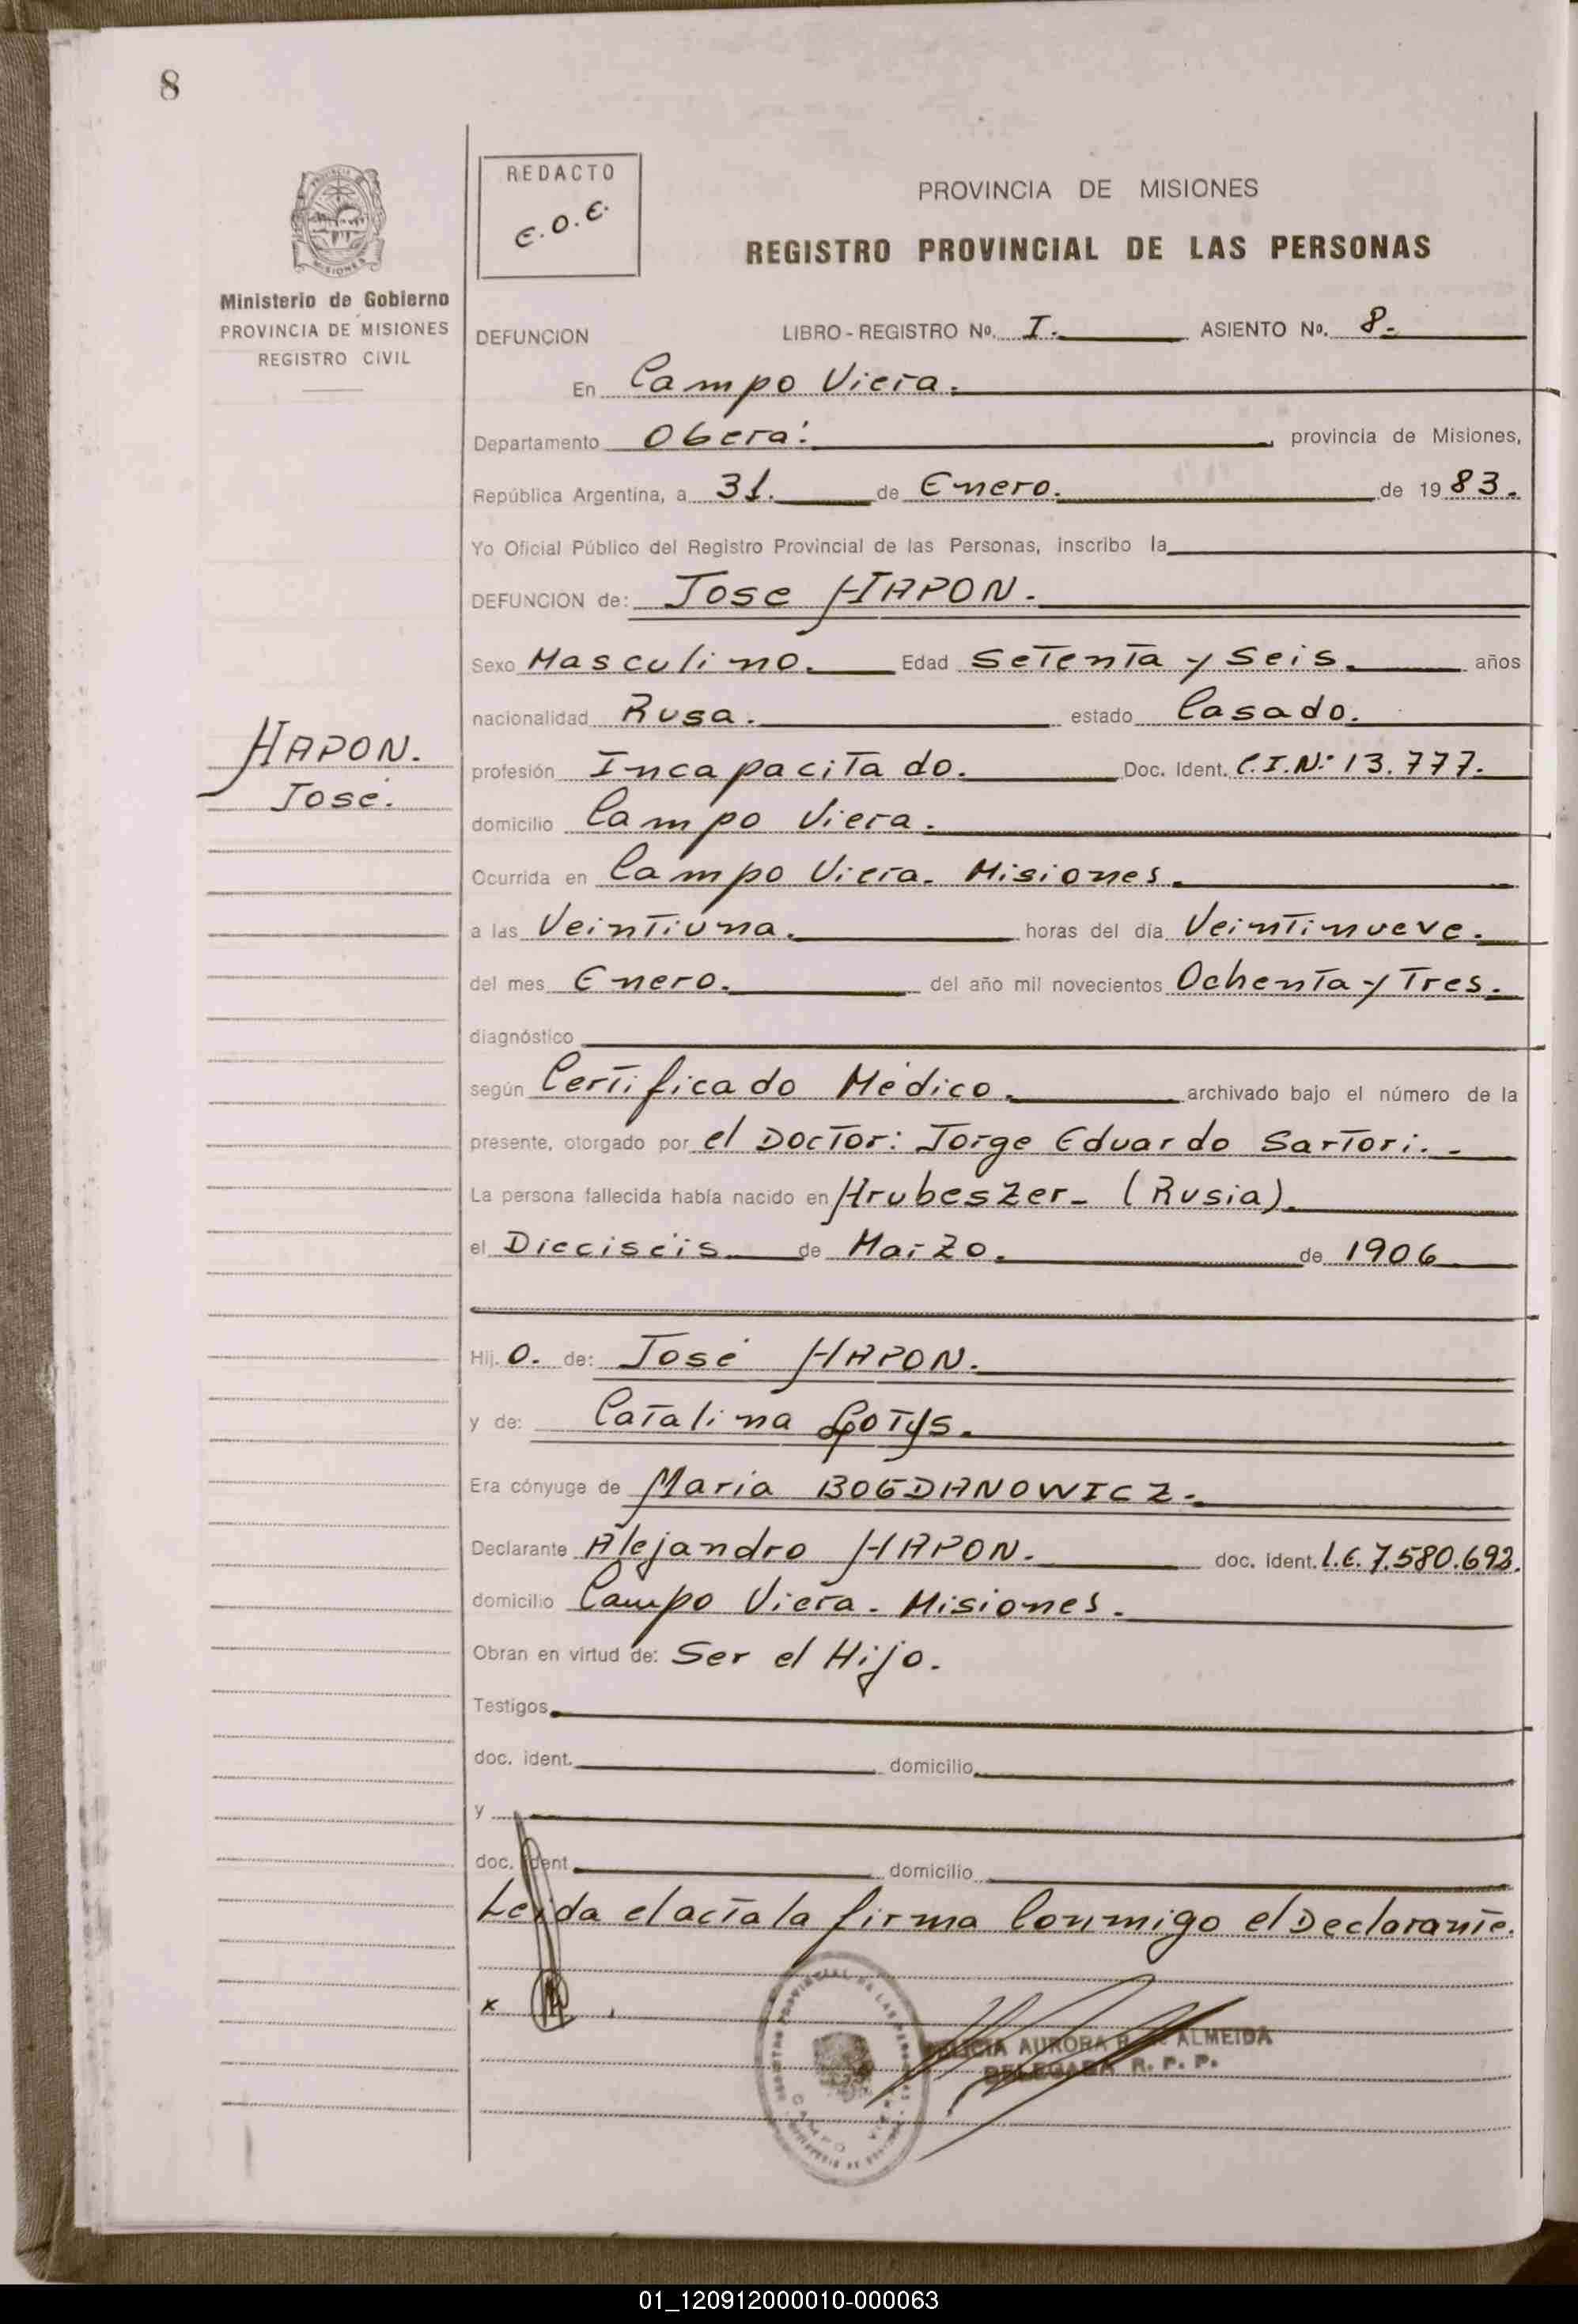 8
REDACTO
E.O.E.
PROVINCIA DE MISIONES
REGISTRO PROVINCIAL DE LAS PERSONAS
Ministerio de Gobierno
PROVINCIA DE MISIONES
REGISTRO CIVIL
DEFUNCION LIBRO-REGISTRO Nº. I. ASIENTO Nº. 8.
En Campo Viera.
Departamento Oberá. , provincia de Misiones,
República Argentina, a 31. de Enero. de 19 83.
Yo Oficial Público del Registro Provincial de las Personas, inscribo la
DEFUNCION de: Jose HAPON.
Sexo Masculino. Edad Setenta y Seis. años
nacionalidad Rusa. estado Casado.
HAPON.
José.
profesión Incapacitado. Doc. Ident. C.I.Nº 13.777.
domicilio Campo Viera.
Ocurrida en Campo Viera. Misiones.
a las Veintiuna. horas del día Veintinueve.
del mes Enero. del año mil novecientos Ochenta y Tres.
diagnóstico
según Certificado Médico. archivado bajo el número de la
presente, otorgado por el Doctor: Jorge Eduardo Sartori.-
La persona fallecida había nacido en Hrubeszer- (Rusia).
el Dieciséis de Marzo. de 1906
Hij. o. de: José HAPON.
y de: Catalina
Era cónyuge de Maria BOGDANOWICZ.
Declarante Alejandro HAPON. doc. ident. L.E. 7.580.692.
domicilio Campo Viera. Misiones.
Obran en virtud de: Ser el Hijo.
Testigos
doc. ident. domicilio
y
doc. ident domicilio
Leída el acta la firma Conmigo el Declarante.
x
AURORA ALMEIDA
DELEGADA R. P. P.
01_120912000010-000063